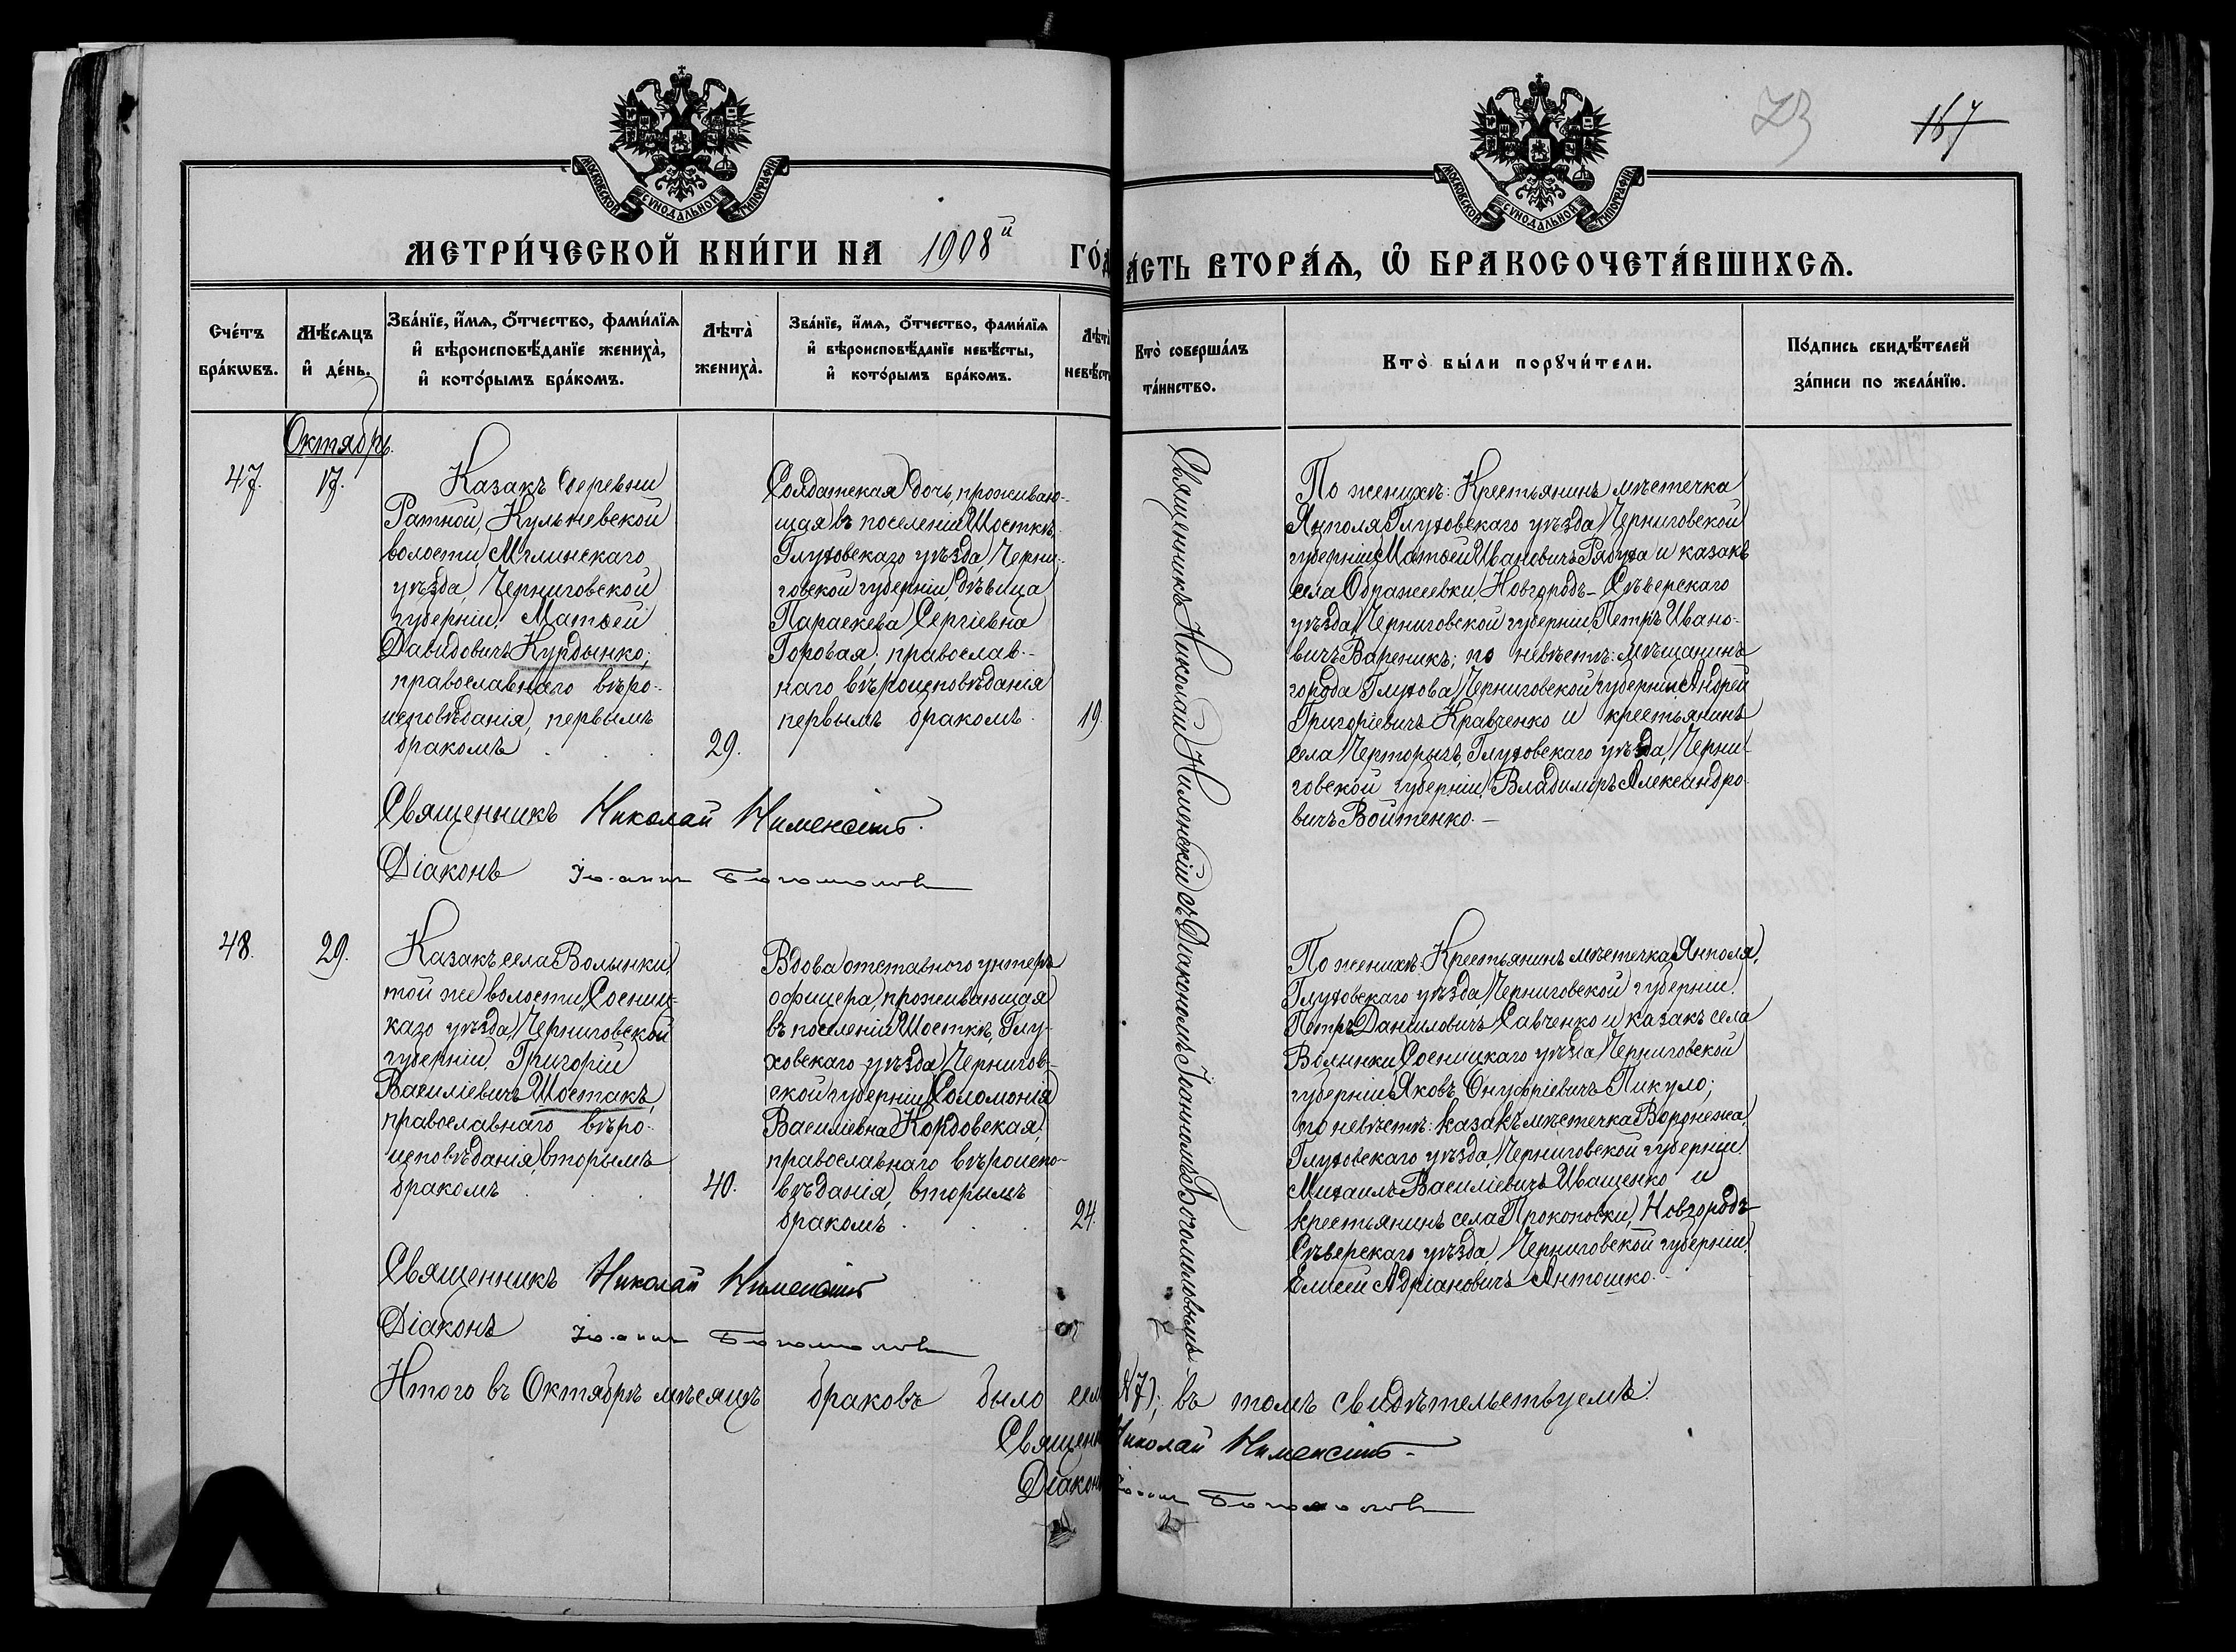 73
167
МОСКОВСКОЙ СѴНОДАЛЬНОЙ ТИПОГРАФІИ
МОСКОВСКОЙ СѴНОДАЛЬНОЙ ТИПОГРАФІИ
МЕТРИ́ЧЕСКОЙ КНИ́ГИ НА 1908й ГО́Д
А́СТЬ ВТОРА́Ѧ, Ѡ҆ БРАКОСОЧЕТА́ВШИХСѦ.
Сче́тъ бра́кѡвъ.
Мѣ́сѧцъ и҆ де́нь.
Зва́нїе, и҆́мѧ, ѻ҆́тчество, фами́лїѧ
и҆ вѣроисповѣ́данїе жениха̀,
и҆ кото́рымъ бра́комъ.
Лѣта̀ жениха̀.
Зва́нїе, и҆́мѧ, ѻ҆́тчество, фами́лїѧ
и҆ вѣроисповѣ́данїе невѣ́сты,
и҆ кото́рымъ бра́комъ.
Лѣта̀
невѣ́ст
Кто̀ соверша́лъ
та́инство.
Кто̀ бы́ли порꙋчи́тели.
По́дпись свидѣ́телей
за́писи по жела́нїю.
Октябрь.
47.
17.
Казакъ деревни
Ратной, Кульневской
волости, Мглинскаго
уѣзда, Черниговской
губерніи, Матѳей
Давидовичъ Курдынко;
православнаго вѣро-
исповѣданія, первымъ
бракомъ
29.
Солдатская дочь, проживаю-
щая въ поселеніи Шосткѣ,
Глуховскаго уѣзда, Черни-
говской губерніи, дѣвица
Параскева Сергіевна
Горовая; православ-
наго вѣроисповѣданія
первымъ бракомъ.
19
Священникъ Николай Нименскій съ Діакономъ Іоанномъ Богомоловымъ
По женихѣ: Крестьянинъ мѣстечка
Янполя, Глуховскаго уѣзда, Черниговской
губерніи, Матѳей Ивановичъ Рябуха и казакъ
села Ображеевки, Новгородъ-Сѣверскаго
уѣзда, Черниговской губерніи, Петръ Ивано-
вичъ Вареникъ; по невѣстѣ: мѣщанинъ
города Глухова, Черниговской губерніи, Андрей
Григоріевичъ Кравченко и крестьянинъ
села Чорторыгъ, Глуховскаго уѣзда, Черни-
говской губерніи, Владимиръ Александро-
вичъ Войтенко.
Священникъ Николай Нименскій.
Діаконъ Іоаннъ Богомоловъ
48.
29.
Казакъ села Волынки,
той же волости, Сосниц-
каго уѣзда, Черниговской
губерніи, Григорій
Василіевичъ Шостакъ,
православнаго вѣро-
исповѣданія, вторымъ
бракомъ
40.
Вдова отставного унтеръ
офицера, проживающая
въ поселеніи Шосткѣ, Глу-
ховскаго уѣзда, Чернигов-
ской губерніи, Соломонія
Василіевна Кордовская,
православнаго вѣроиспо-
вѣданія, вторымъ
бракомъ
24.
По женихѣ: Крестьянинъ мѣстечка Янполя,
Глуховскаго уѣзда, Черниговской губерніи,
Петръ Даніиловичъ Савченко и казакъ села
Волынки, Сосницкаго уѣзда, Черниговской
губерніи, Яковъ Онуфріевичъ Пикуло;
по невѣстѣ: казакъ мѣстечка Воронежа,
Глуховскаго уѣзда, Черниговской губерніи
Михаилъ Василіевичъ Иващенко и
крестьянинъ села Прокоповки, Новгородъ-
Сѣверскаго уѣзда, Черниговской губерніи,
Елисей Адріановичъ Антошко.
Священникъ Николай Нименскій
Діаконъ Іоаннъ Богомоловъ
Итого въ Октябрѣ мѣсяцѣ браковъ было сем (7); въ томъ свидѣтельствуемъ:
Священ Николай Нименскій
Діаконъ Іоаннъ Богомоловъ